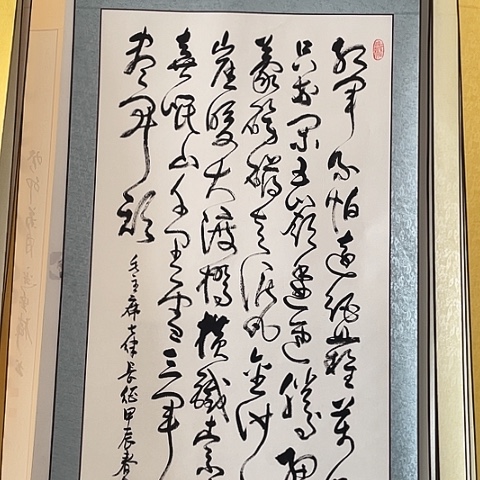 红军不怕远征难万
只等闲五岭逶迤腾细
蒙磅礴走泥丸金沙
崖暖大渡桥横铁索
喜岷山千里雪三军
尽开颜
毛主席七律长征甲辰春